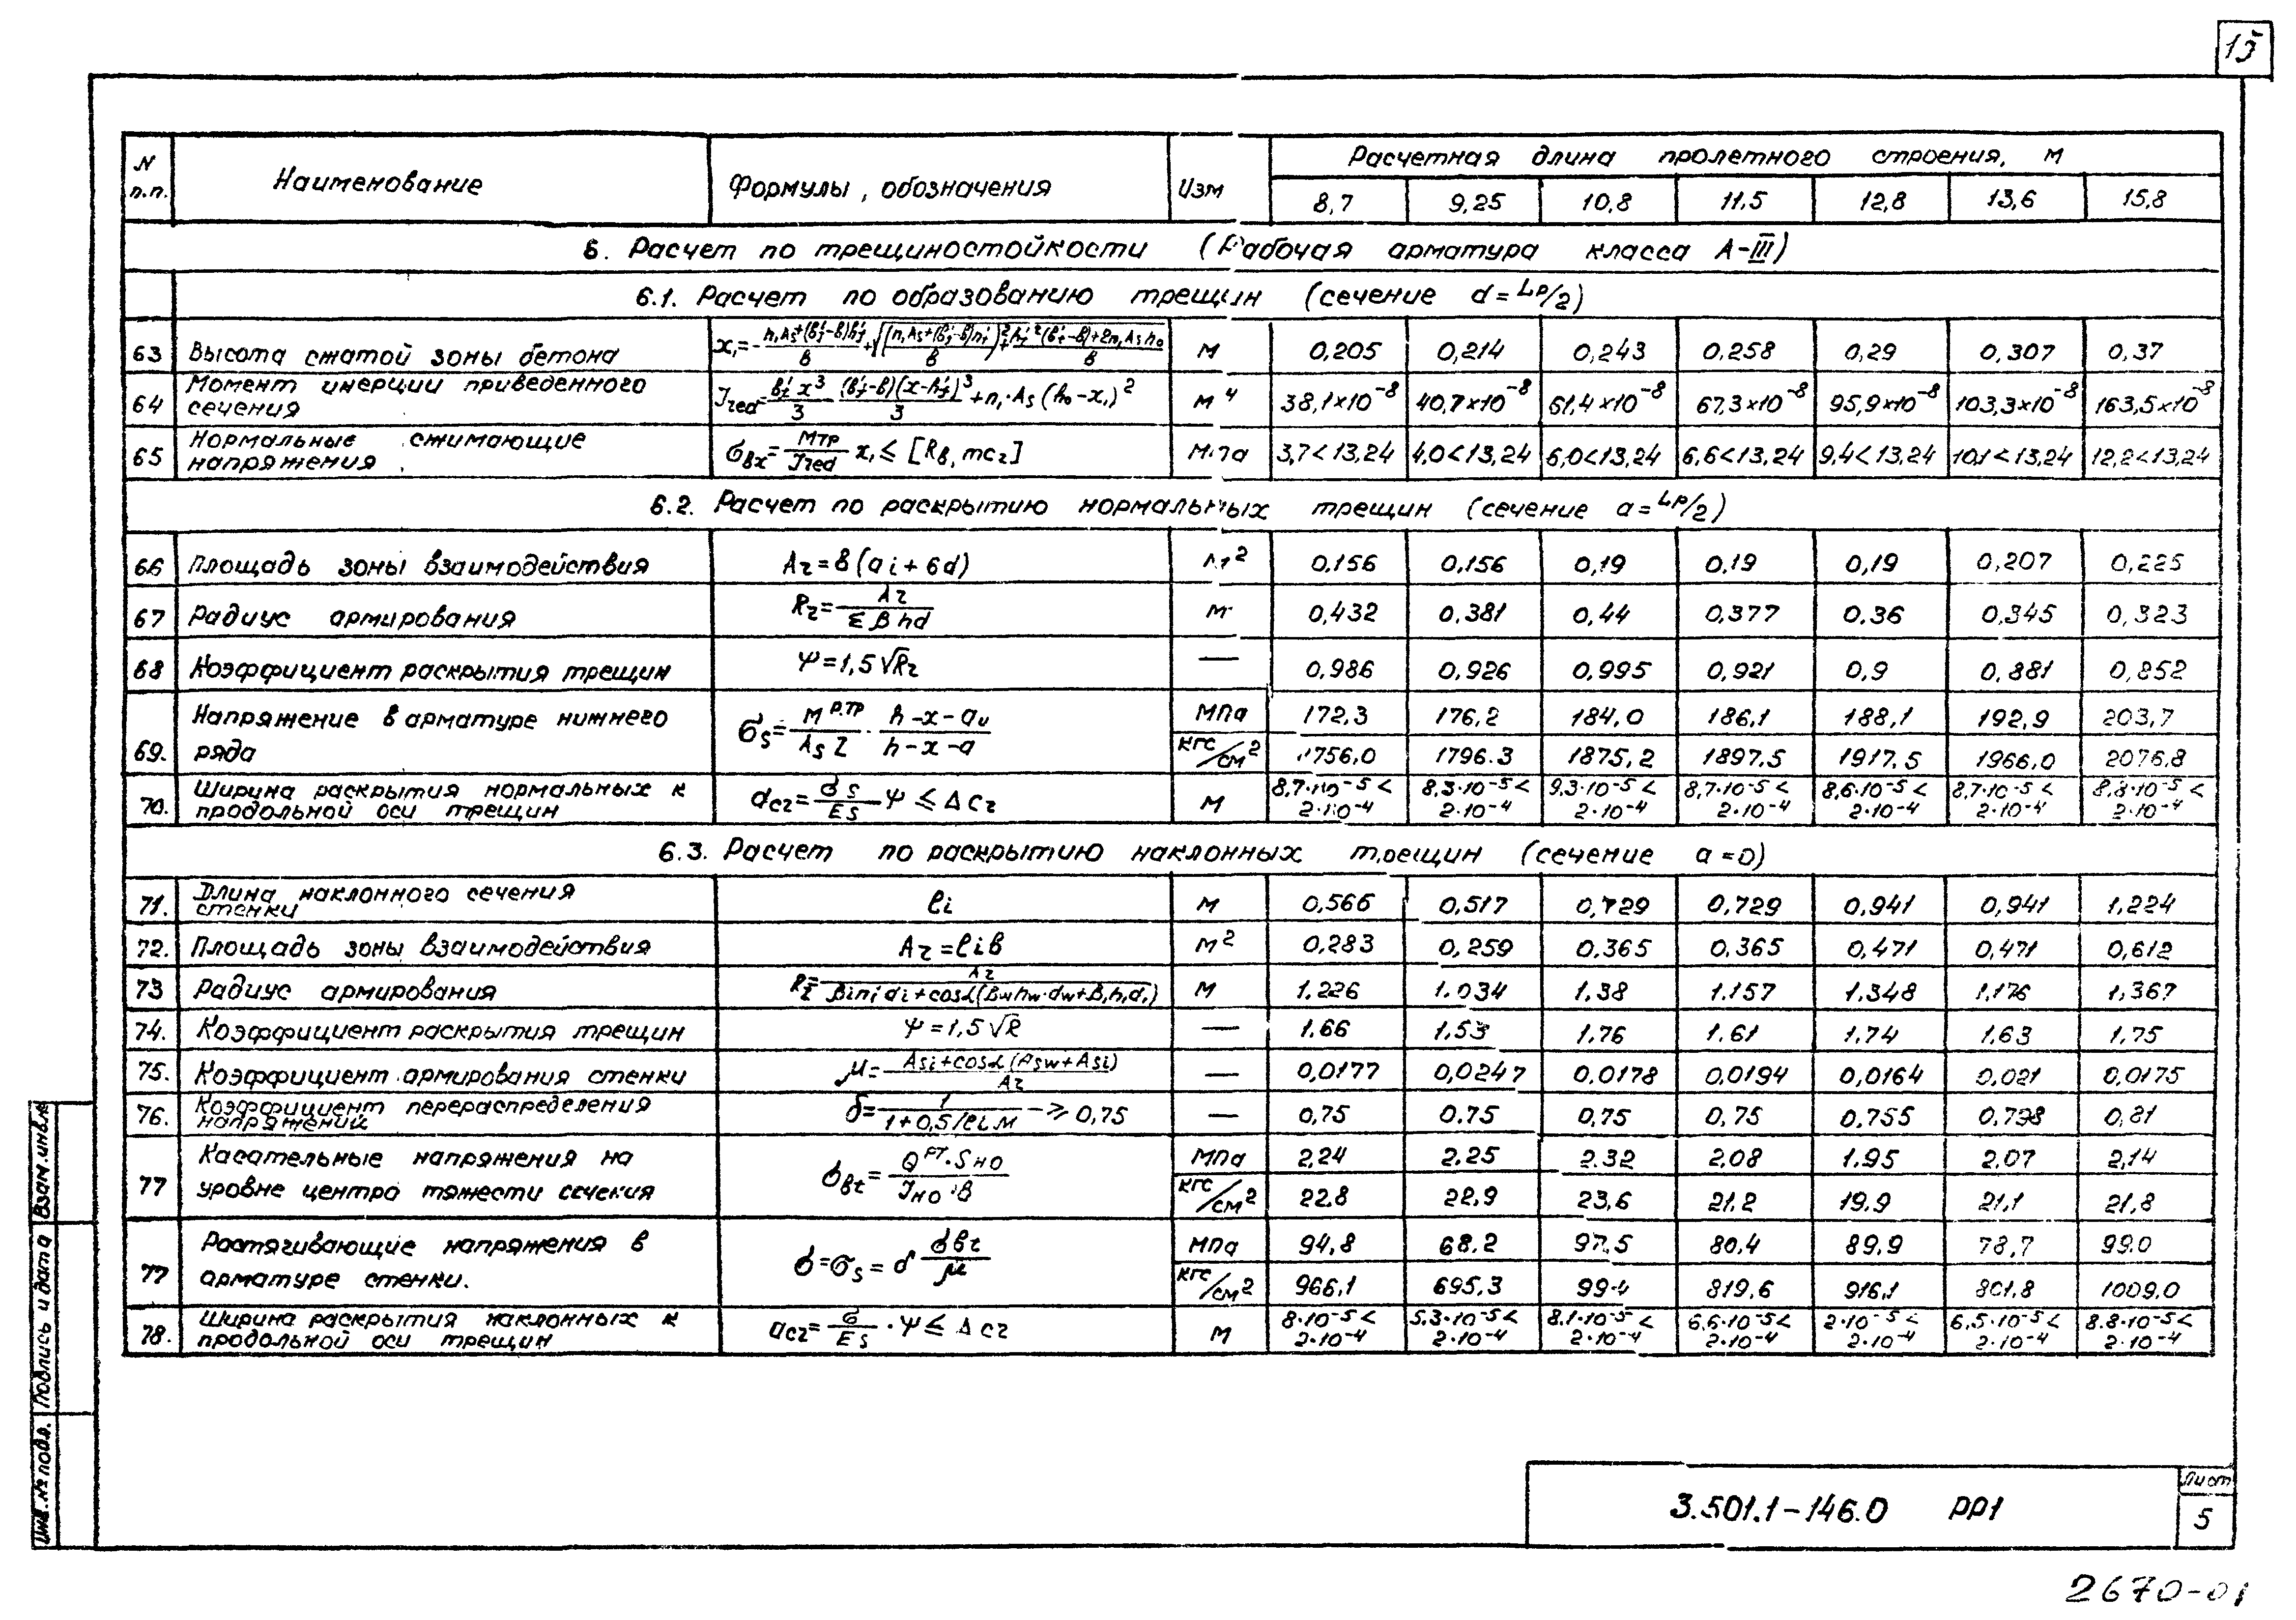 15
N п.п. Наименование Формулы, обозначения Изм Расчетная длина пролетного строения, м
8,7 9,25 10,8 11,5 12,8 13,6 15,8
6. Расчет по трещиностойкости (Рабочая арматура класса А-III)
6.1. Расчет по образованию трещин (сечение d=Lp/2)
63 Высота сжатой зоны бетона м 0,205 0,214 0,243 0,258 0,29 0,307 0,37
64 Момент инерции приведенного сечения Jred= b'f x³/3 (b'f-b)(x-h'f)³/3 +n₁·As(h₀-x₁)² м⁴ 38,1×10⁻⁸ 40,7×10⁻⁸ 61,4×10⁻⁸ 67,3×10⁻⁸ 95,9×10⁻⁸ 103,3×10⁻⁸ 163,5×10⁻⁸
65 Нормальные сжимающие напряжения σbx= Mтр/Jred x₁≤[Rb,mc2] МПа 3,7<13,24 4,0<13,24 6,0<13,24 6,6<13,24 9,4<13,24 10,1<13,24 12,2<13,24
6.2. Расчет по раскрытию нормальных трещин (сечение a=Lp/2)
66 Площадь зоны взаимодействия Ar=b(ai+6d) м² 0,156 0,156 0,19 0,19 0,19 0,207 0,225
67 Радиус армирования Rr= Ar/Σβnd м 0,432 0,381 0,44 0,377 0,36 0,345 0,323
68 Коэффициент раскрытия трещин Ψ=1,5√Rr — 0,986 0,926 0,995 0,921 0,9 0,881 0,852
69. Напряжение в арматуре нижнего ряда σs= M р.тр/As Z · h-x-au/h-x-a МПа 172,3 176,2 184,0 186,1 188,1 192,9 203,7
кгс/см² 1756,0 1796.3 1875,2 1897,5 1917,5 1966,0 2076,8
70. Ширина раскрытия нормальных к продольной оси трещин acr= σs/Es Ψ≤Δcr м 8,7·10⁻⁵< 2·10⁻⁴ 8,3·10⁻⁵< 2·10⁻⁴ 9,3·10⁻⁵< 2·10⁻⁴ 8,7·10⁻⁵< 2·10⁻⁴ 8,6·10⁻⁵< 2·10⁻⁴ 8,7·10⁻⁵< 2·10⁻⁴ 8,8·10⁻⁵< 2·10⁻⁴
6.3. Расчет по раскрытию наклонных трещин (сечение a=0)
71. Длина наклонного сечения стенки li м 0,566 0,517 0,729 0,729 0,941 0,941 1,224
72. Площадь зоны взаимодействия Ar=lib м² 0,283 0,259 0,365 0,365 0,471 0,471 0,612
73 Радиус армирования Rr= Ar/βinidi+cosα(βwnw·dw+β₁n₁d₁) м 1.226 1.034 1.38 1.157 1.348 1,176 1,367
74. Коэффициент раскрытия трещин Ψ=1,5√R — 1.66 1.53 1.76 1.61 1.74 1,63 1,75
75. Коэффициент армирования стенки μ= Asi+cosα(Asw+Asi)/Ar — 0,0177 0,0247 0,0178 0,0194 0,0164 0,021 0,0175
76. Коэффициент перераспределения напряжений δ= 1/1+0,5/liμ ≥0,75 — 0,75 0.75 0,75 0,75 0.755 0,798 0,81
77 Касательные напряжения на уровне центра тяжести сечения σbt= Q рт·Sно/Jно·b МПа 2,24 2.25 2.32 2,08 1.95 2,07 2,14
кгс/см² 22.8 22,9 23,6 21,2 19,9 21,1 21,8
77 Растягивающие напряжения в арматуре стенки. σ=σs=δ σbt/μ МПа 94,8 68.2 97,5 80,4 89,9 78,7 99.0
кгс/см² 966,1 695.3 99·4 819,6 916,1 801,8 1009,0
78. Ширина раскрытия наклонных к продольной оси трещин acr= σ/Es ·Ψ≤Δcr м 8·10⁻⁵< 2·10⁻⁴ 5.3·10⁻⁵< 2·10⁻⁴ 8,1·10⁻⁵< 2·10⁻⁴ 6.6·10⁻⁵< 2·10⁻⁴ 2·10⁻⁵< 2·10⁻⁴ 6,5·10⁻⁵< 2·10⁻⁴ 8.8·10⁻⁵< 2·10⁻⁴
Инв.№ подл. Подпись и дата Взам.инв.№
3.501.1-146.0 РР1
Лист
5
2670-01